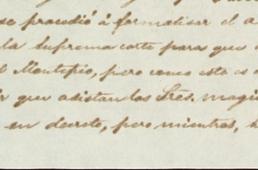 se procedió á formalisar el a
la Suprema corte para que
l Montepío, pero como este es
ir que asistan los Sres. magi
en decreto, pero mientras,